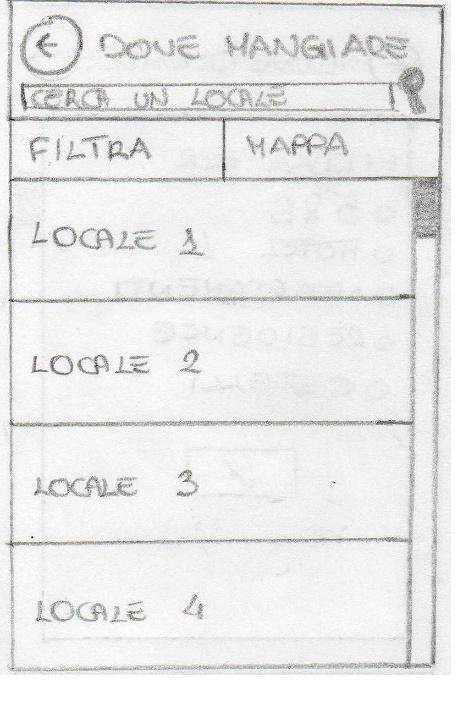 DOVE MANGIARE
CERCA UN LOCALE
FILTRA MAPPA
LOCALE 1
LOCALE 2
LOCALE 3
LOCALE 4